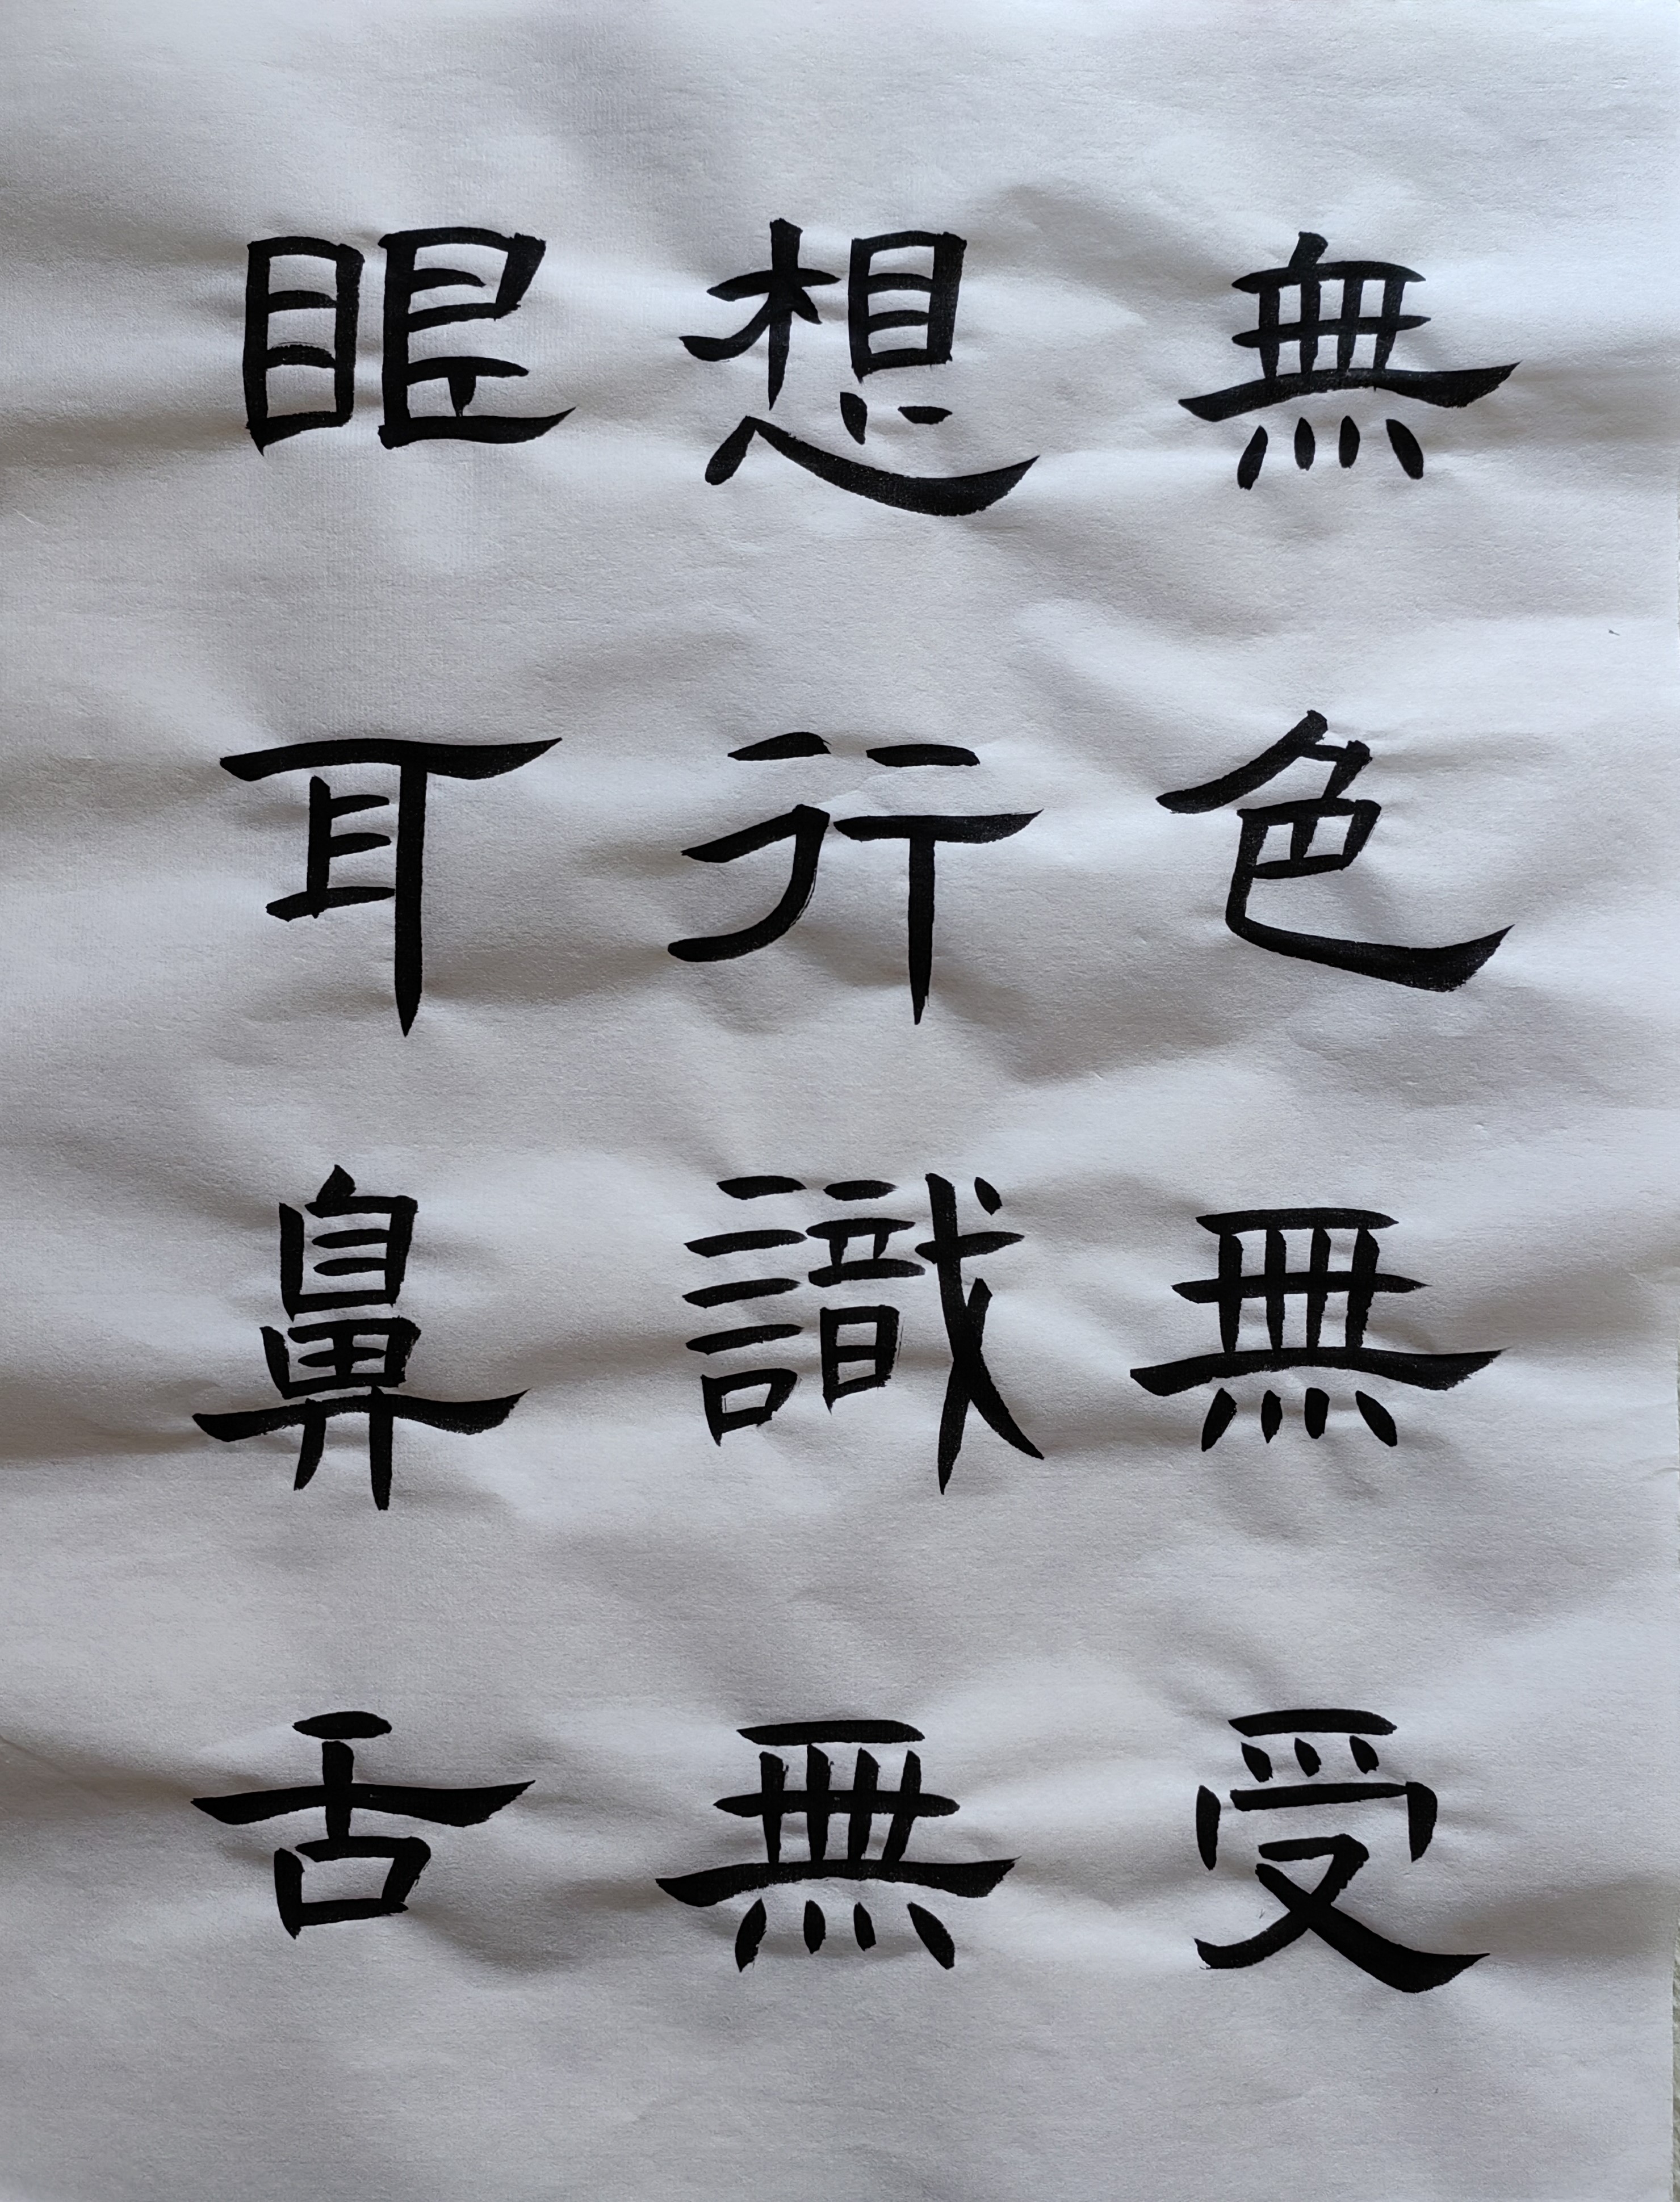 無色無受
想行識無
眼耳鼻舌